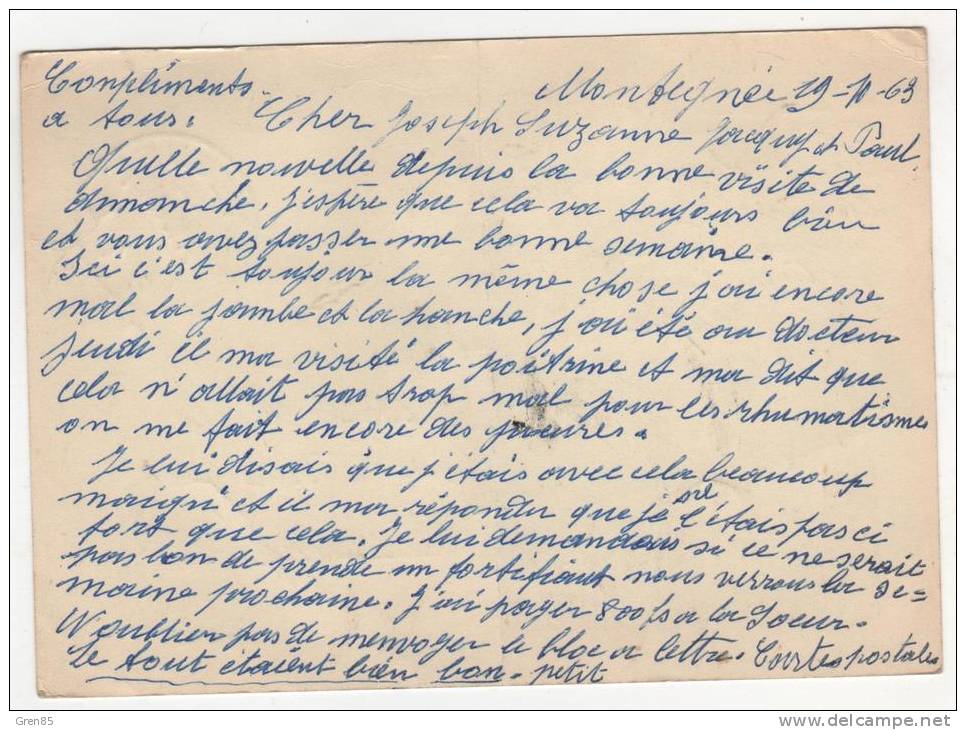 Compliments
a tous.
Montegnée 19-10-63
Cher Joseph Suzanne Jacquy et Paul.
Quelle nouvelle depuis la bonne visite de
dimanche. J'espère que cela va toujours bien
et vous avez passer une bonne semaine.
Ici c'est toujour la même chose j'ai encore
mal la jambe et la hanche, j'ai été au docteur
jeudi il ma visité la poitrine et ma dit que
cela n'allait pas trop mal pour les rhumatismes
on me fait encore des piqures.
Je lui disais que j'étais avec cela beaucoup
maigri et il ma répondu que je l'étais pas ci
fort que cela. Je lui demandais si ce ne serait
pas bon de prende un fortifiant nous verrons la se=
maine prochaine. J'ai payer 800 fs a la Soeur.
N'oublier pas de menvoyer le bloc a lettre. Cartes postales
Le tout étaient bien bon. petit
Gren85
http://www.delcampe.net